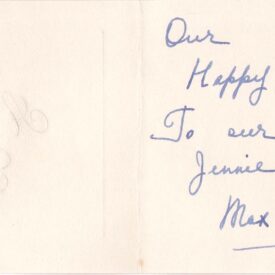 Our
Happy
To our
Jennie
Max